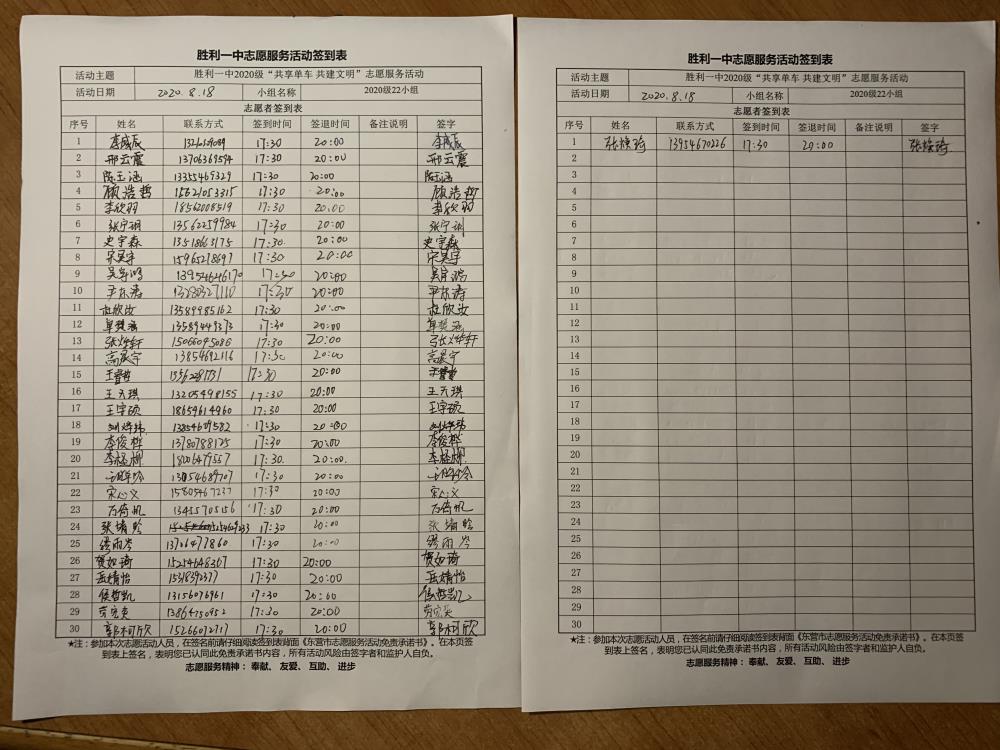 胜利一中志愿服务活动签到表
活动主题 胜利一中2020级“共享单车 共建文明”志愿服务活动
活动日期 2020.8.18 小组名称 2020级22小组
志愿者签到表
序号 姓名 联系方式 签到时间 签退时间 备注说明 签字
1 李咸辰 17:30 20:00 李咸辰
2 邢云震 13706369594 17:30 20:00 邢云震
3 陈玉涵 13355469329 17:30 20:00 陈玉涵
4 顾浩哲 18621053315 17:30 20:00 顾浩哲
5 李欣羽 18562008519 17:30 20:00 李欣羽
6 张宁玥 13562259984 17:30 20:00 张宁玥
7 史宇森 13518663175 17:30 20:00 史宇森
8 宋昊宇 15965218697 17:30 20:00 宋昊宇
9 13954646170 17:30 20:00
10 尹东涛 13280327110 17:30 20:00 尹东涛
11 杜欣汝 13589985162 17:30 20:00 杜欣汝
12 13589449373 17:30 20:00
13 张烨轩 15066095086 17:30 20:00 张烨轩
14 高晨宁 13854692116 17:30 20:00 高晨宁
15 17:30 20:00
16 王天琪 13205498155 17:30 20:00 王天琪
17 王宇硕 18659614960 17:30 20:00 王宇硕
18 17:30 20:00
19 李俊桦 13780788125 17:30 20:00 李俊桦
20 17:30 20:00
21 13054689707 17:30 20:00
22 宋心义 15805467237 17:30 20:00 宋心义
23 万倚帆 13455705156 17:30 20:00 万倚帆
24 张婧晗 17:30 20:00 张婧晗
25 缪雨岑 13706477860 17:30 20:00 缪雨岑
26 贺如琦 15254648367 17:30 20:00 贺如琦
27 岳婧怡 17:30 20:00 岳婧怡
28 侯哲凯 13156076961 17:30 20:00 侯哲凯
29 劳宏英 13864750952 17:30 20:00 劳宏英
30 郭柯欣 15266072717 17:30 20:00 郭柯欣
★注：参加本次志愿活动人员，在签名前请仔细阅读签到表背面《东营市志愿服务活动免责承诺书》。在本页签
到表上签名，表明您已认同此免责承诺书内容，所有活动风险由签字者和监护人自负。
志愿服务精神： 奉献、 友爱、 互助、 进步
胜利一中志愿服务活动签到表
活动主题 胜利一中2020级“共享单车 共建文明”志愿服务活动
活动日期 2020.8.18 小组名称 2020级22小组
志愿者签到表
序号 姓名 联系方式 签到时间 签退时间 备注说明 签字
1 张焕琦 13954670226 17:30 20:00 张焕琦
2
3
4
5
6
7
8
9
10
11
12
13
14
15
16
17
18
19
20
21
22
23
24
25
26
27
28
29
30
★注：参加本次志愿活动人员，在签名前请仔细阅读签到表背面《东营市志愿服务活动免责承诺书》。在本页签
到表上签名，表明您已认同此免责承诺书内容，所有活动风险由签字者和监护人自负。
志愿服务精神： 奉献、 友爱、 互助、 进步